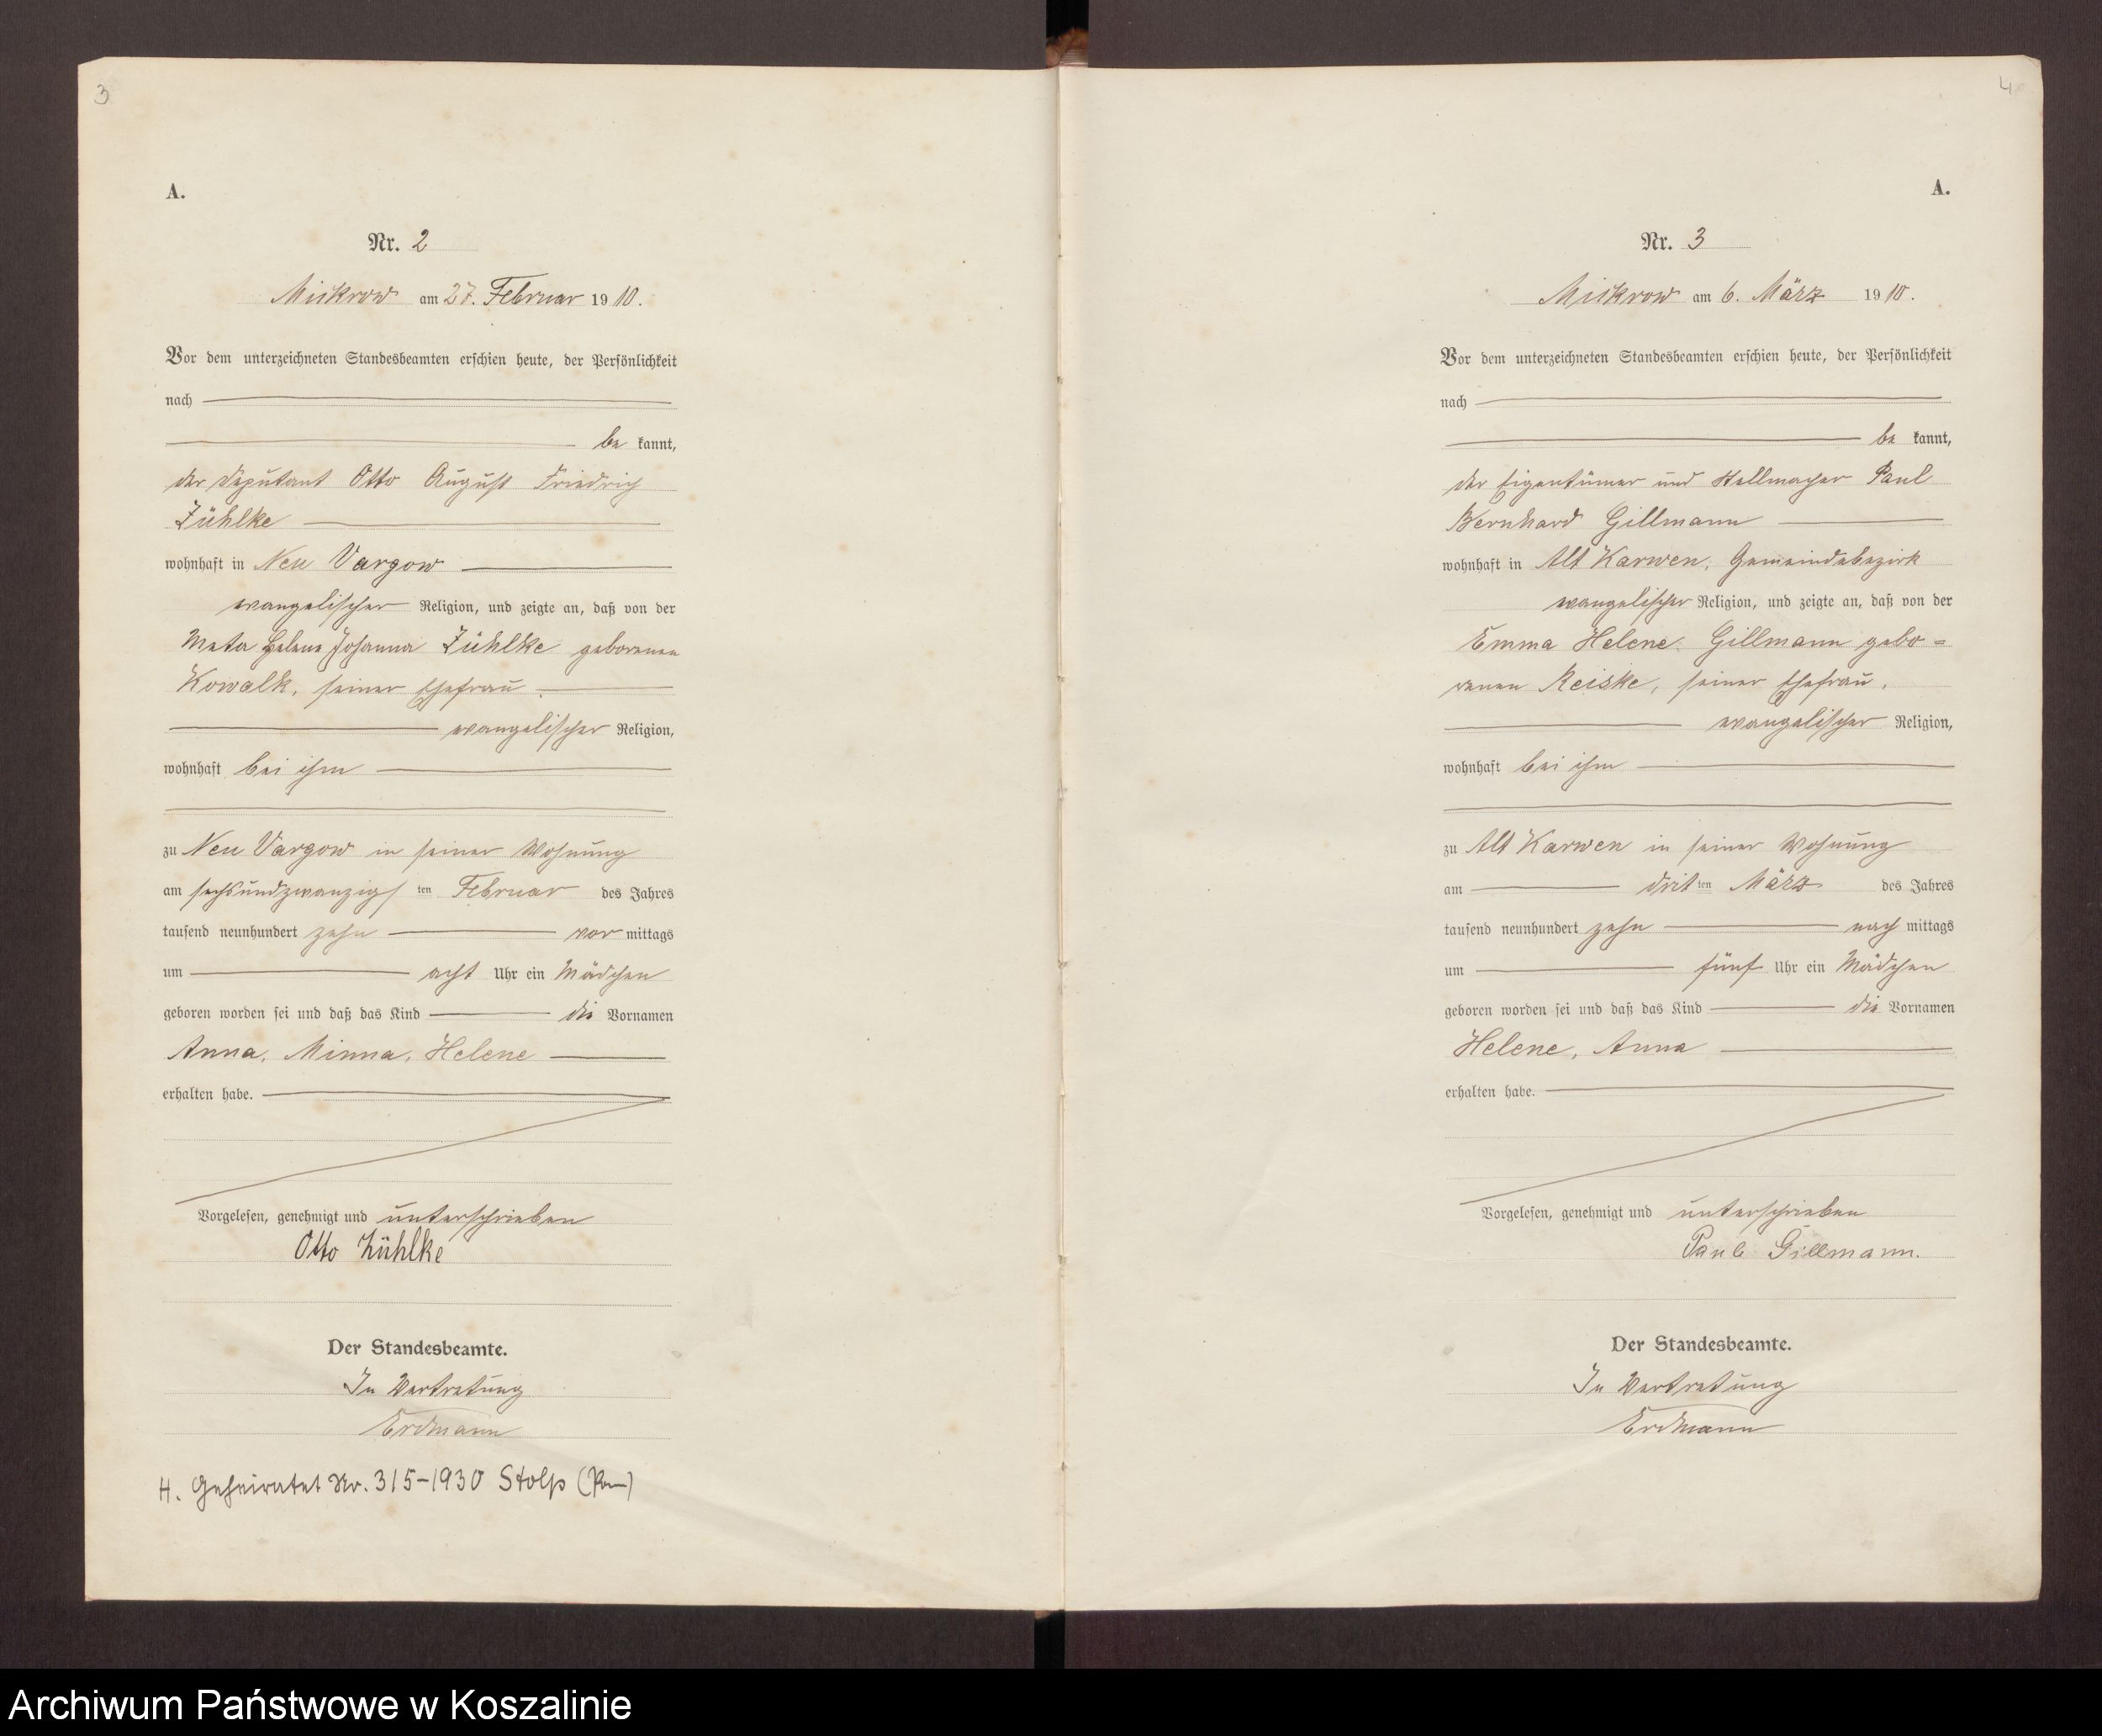 3
A.
Nr. 2
Mickrow am 27. Februar 1910.
Vor dem unterzeichneten Standesbeamten erschien heute, der Persönlichkeit
nach
be kannt,
der Deputant Otto August Friedrich
Zühlke
wohnhaft in Neu Vargow
evangelischer Religion, und zeigte an, daß von der
Meta Helene Johanna Zühlke geborenen
Kowalk, seiner Ehefrau,
evangelischer Religion,
wohnhaft bei ihm
zu Neu Vargow in seiner Wohnung
am sechsundzwanzigsten Februar des Jahres
tausend neunhundert zehn vor mittags
um acht Uhr ein Mädchen
geboren worden sei und daß das Kind die Vornamen
Anna, Minna, Helene
erhalten habe.
Vorgelesen, genehmigt und unterschrieben
Otto Zühlke
Der Standesbeamte.
In Vertretung
Erdmann
H. Geheiratet Nr. 315-1930 Stolp (Pom)
4
A.
Nr. 3
Mickrow am 6. März 1910.
Vor dem unterzeichneten Standesbeamten erschien heute, der Persönlichkeit
nach
be kannt,
der Eigentümer und Stellmacher Paul
Bernhard Gillmann
wohnhaft in Alt Karwen, Gemeindebezirk
evangelischer Religion, und zeigte an, daß von der
Emma Helene Gillmann gebo-
renen Reiske, seiner Ehefrau,
evangelischer Religion,
wohnhaft bei ihm
zu Alt Karwen in seiner Wohnung
am dritten März des Jahres
tausend neunhundert zehn nach mittags
um fünf Uhr ein Mädchen
geboren worden sei und daß das Kind die Vornamen
Helene, Anna
erhalten habe.
Vorgelesen, genehmigt und unterschrieben
Paul Gillmann.
Der Standesbeamte.
In Vertretung
Erdmann
Archiwum Państwowe w Koszalinie